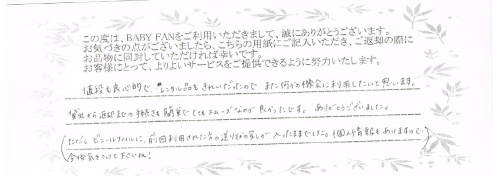 この度は、BABY FANをご利用いただきまして、誠にありがとうございます。
お気づきの点がございましたら、こちらの用紙にご記入いただき、ご返却の際に
お品物に同封していただければ幸いです。
お客様にとって、よりよいサービスをご提供できるように努力いたします。
値段も良心的で、レンタル品もきれいだったので また何かの機会に利用したいと思います。
貸出から返却までの手続きも簡単でとてもスムーズなのが良かったです。 ありがとうございました。
(ただし ビニールファイルに、前回利用された方の送り状の写しが入ったままでした。個人情報もありますので
今後気をつけて下さいね!